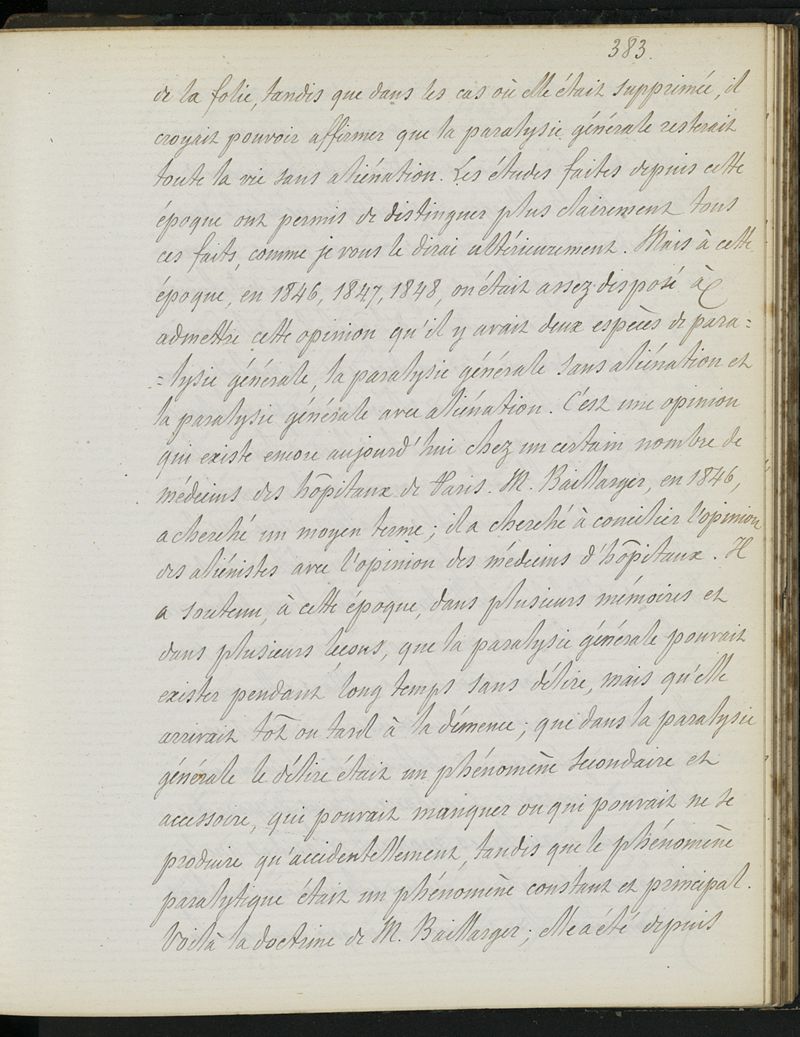 383.
de la folie, tandis que dans les cas où elle était supprimée, il
croyait pouvoir affirmer que la paralysie générale resterait
toute la vie sans aliénation. Les études faites depuis cette
époque ont permis de distinguer plus clairement tous
ces faits, comme je vous le dirai ultérieurement. Mais à cette
époque, en 1846, 1847, 1848, on était assez disposé à
admettre cette opinion qu'il y avait deux espèces de para=
=lysie générale, la paralysie générale sans aliénation et
la paralysie générale avec aliénation. C'est une opinion
qui existe encore aujourd'hui chez un certain nombre de
médecins des hôpitaux de Paris. M. Baillarger, en 1846,
a cherché un moyen terme ; il a cherché à concilier l'opinion
des aliénistes avec l'opinion des médecins d'hôpitaux. Il
a soutenu, à cette époque, dans plusieurs mémoires et
dans plusieurs leçons, que la paralysie générale pouvait
exister pendant long temps sans délire, mais qu'elle
arrivait tôt ou tard à la démence ; que dans la paralysie
générale le délire était un phénomène secondaire et
accessoire, qui pouvait manquer ou qui pouvait ne se
produire qu'accidentellement, tandis que le phénomène
paralytique était un phénomène constant et principal.
Voilà la doctrine de M. Baillarger ; elle a été depuis